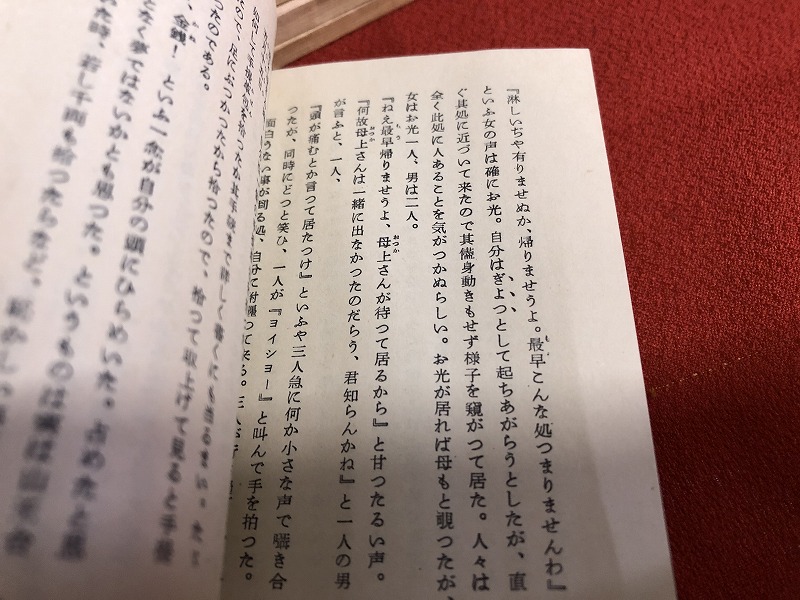 『淋しいぢや有りませぬか、帰りませうよ。最早こんな処つまりませんわ』
といふ女の声は確にお光。自分はぎよつとして起ちあがらうとしたが、直
ぐ其処に近づいて来たので其儘身動きもせず様子を窺がつて居た。人々は
全く此処に人あることを気がつかぬらしい。お光が居れば母もと覗つたが、
女はお光一人、男は二人。
『ねえ最早帰りませうよ、母上さんが待つて居るから』と甘つたるい声。
『何故母上さんは一緒に出なかつたのだらう、君知らんかね』と一人の男
が言ふと、一人、
『頭が痛むとか言つて居たつけ』といふや三人急に何か小さな声で囁き合
つたが、同時にどつと笑ひ、一人が『ヨイショー』と叫んで手を拍つた。
面白うない事が至る処、自分に付纏つて来る。三人が
たのである。
金銭！といふ一念が自分の頭にひらめいた。占めたと思
となく夢ではないかとも思つた。というものは実は
た時、若し千両も拾つたらなど、
なので、足にぶつかつたから拾つたので、拾つて取上げて見ると手